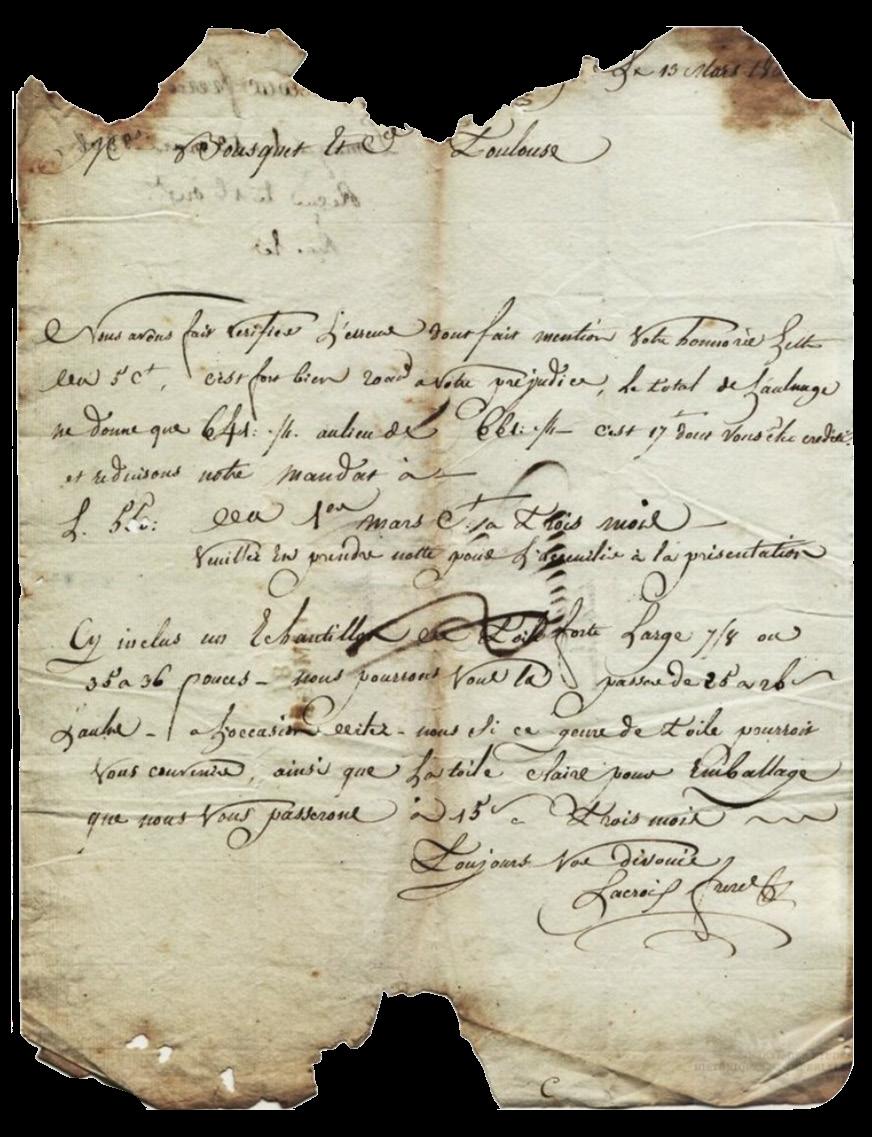 Le 13 Mars 18
Bousquet Et Cie Toulouse
Nous avons fait verifier L'erreur dont fait mention Votre honnorée Lettre
du 5 Ct, c'est fort bien a votre préjudice, le total de L'aulnage
ne donne que 641: au lieu de 661: c'est 17 dont Vous êtes credités
et reduisons notre mandat à
L. du 1er mars Ct. a trois mois
Veuillez En prendre notte pour L'accueillir à la présentation
Cy inclus un Echantillon de Toile forte Large 7/8 ou
35 a 36 pouces - nous pourrons Vous la passer de 25 a 26
L'aulne - a L'occasion dites - nous si ce genre de toile pourroit
Vous convenir, ainsi que La toile claire pour Emballage
que nous Vous passerons à 15 à trois mois
Toujours Vos dévoués
Lacroix freres